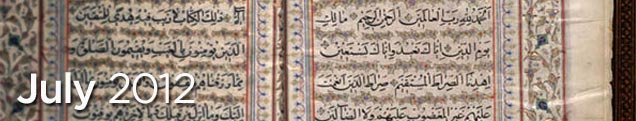 الحمد لله رب العالمين الرحمن الرحيم مالك
يوم الدين اياك نعبد واياك نستعين
اهدنا الصراط المستقيم صراط الذين انعمت
عليهم غير المغضوب عليهم ولا الضالين
ذلك الكتاب لا ريب فيه هدى للمتقين
الذين يؤمنون بالغيب ويقيمون الصلوة
ومما رزقناهم
July 2012